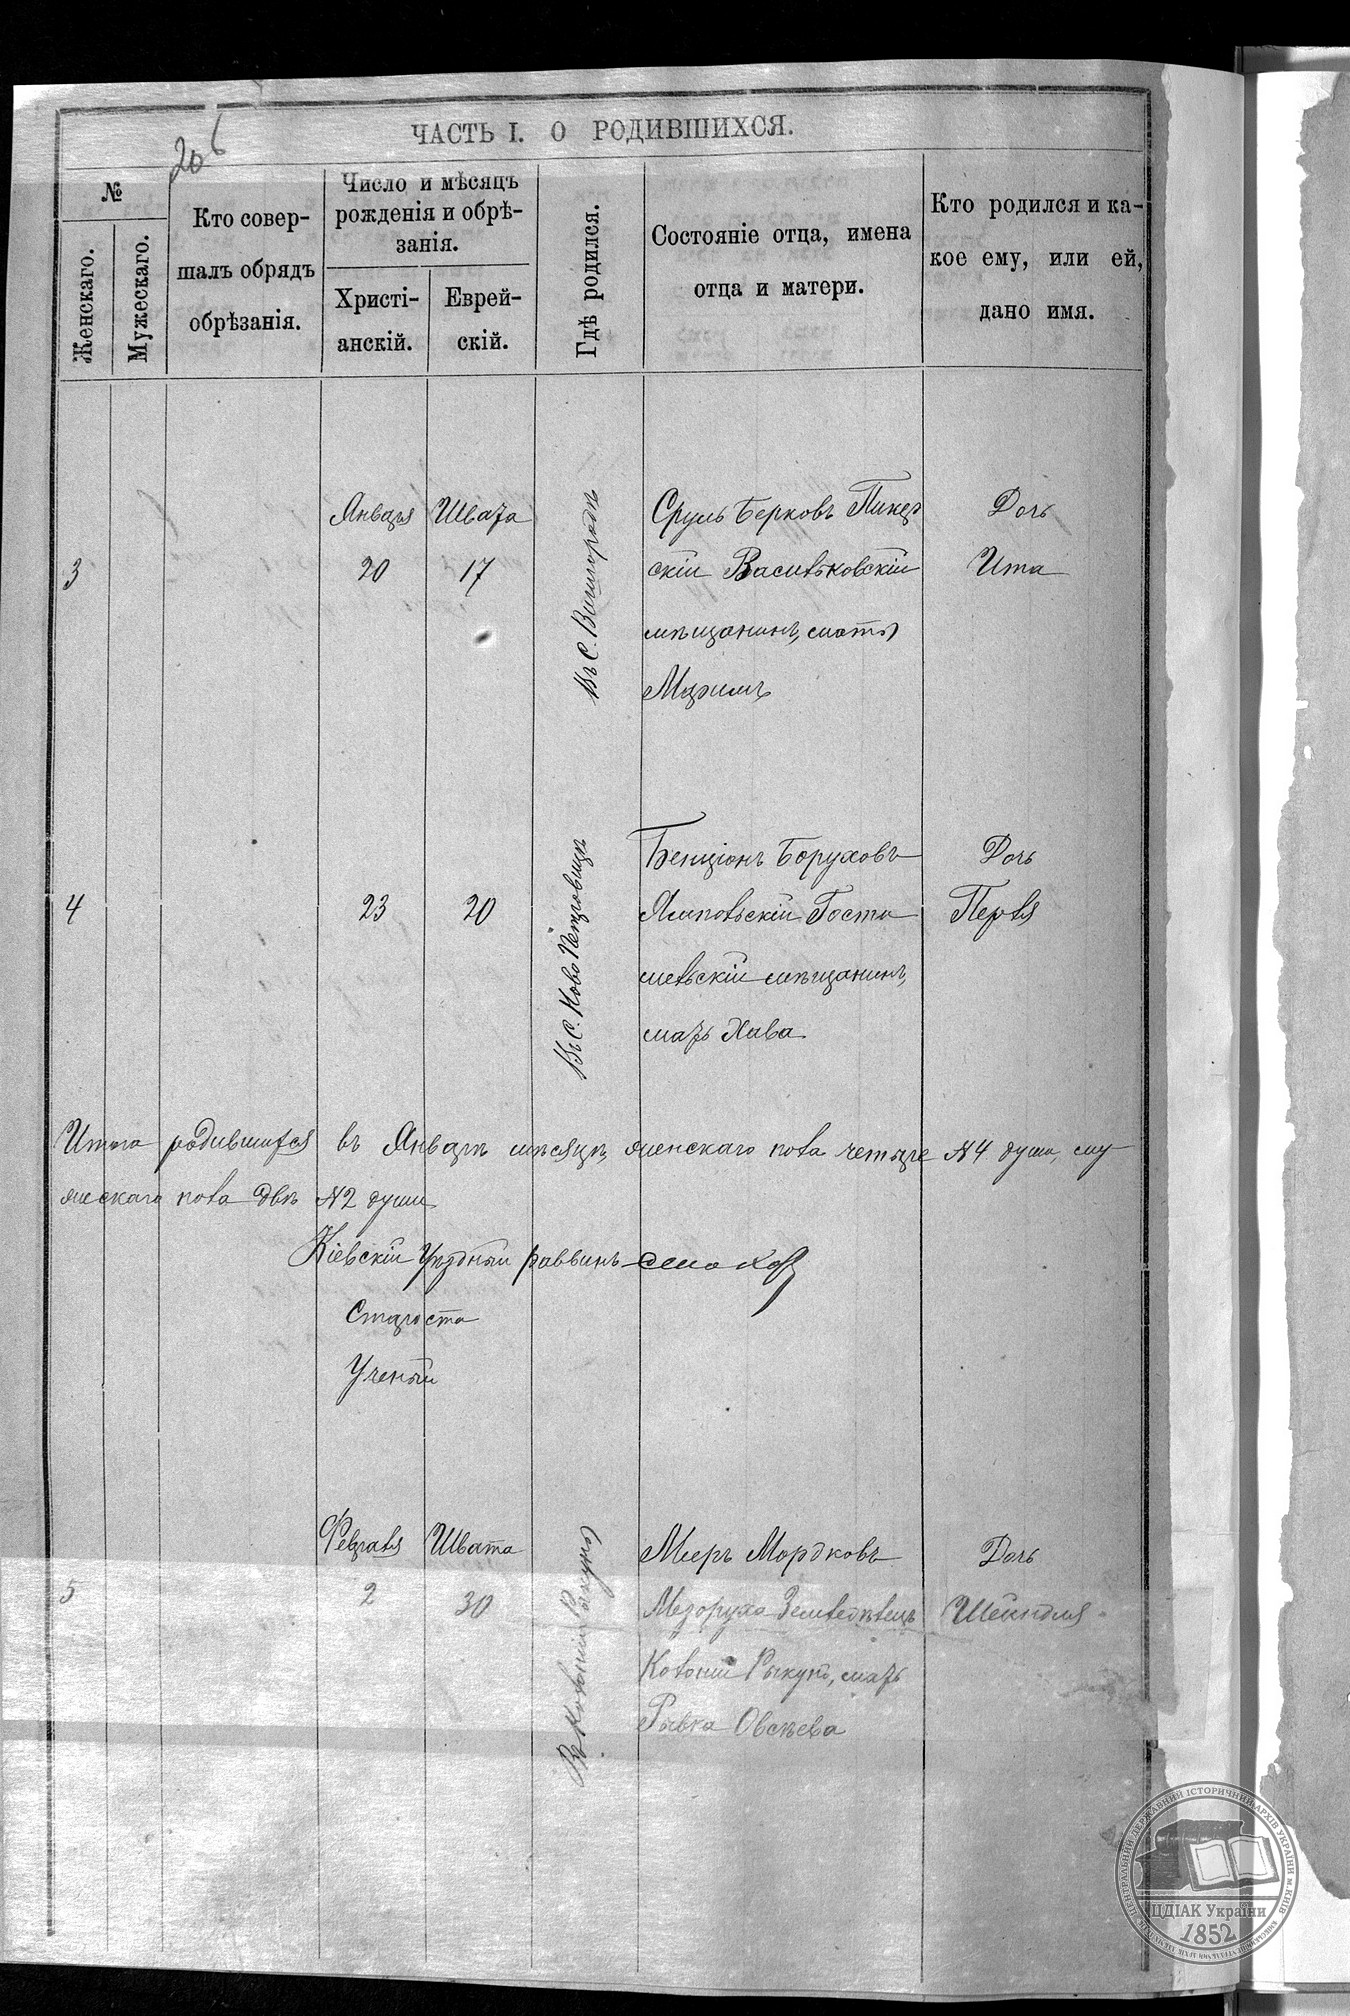 206
ЧАСТЬ I. О РОДИВШИХСЯ.
№
Женскаго.
Мужескаго.
Кто совер-
шалъ обрядъ
обрѣзанія.
Число и мѣсяцъ
рожденія и обрѣ-
занія.
Христі-
анскій.
Еврей-
скій.
Гдѣ родился.
Состояніе отца, имена
отца и матери.
Кто родился и ка-
кое ему, или ей,
дано имя.
3
Января
20
Швата
17
Въ С. Вышгородѣ
Сруль Берковъ
скій Васильковскій
мѣщанинъ, мать
Маримъ
Дочь
Ита
4
23
20
Въ С. Ново Петровцѣ
Бенціонъ Боруховъ
Ямпольскій Госто
мельскій мѣщанинъ,
мать Хава
Дочь
Перля
Итого родившихся въ Январѣ мѣсяцѣ, женскаго пола четыре №4 души, му
жескаго пола двѣ №2 души
Кіевскій Уѣздный раввинъ
Староста
Ученый
5
Февраля
2
Швата
30
Въ Колоніи Рыкунь
Мееръ Мордковъ
Земледѣлецъ
Колоніи Рыкунь, мать
Рывка Овсѣева
Дочь
Шейндля
ЦЕНТРАЛЬНИЙ ДЕРЖАВНИЙ ІСТОРИЧНИЙ АРХІВ УКРАЇНИ м. КИЇВ
ЦДІАК України
1852